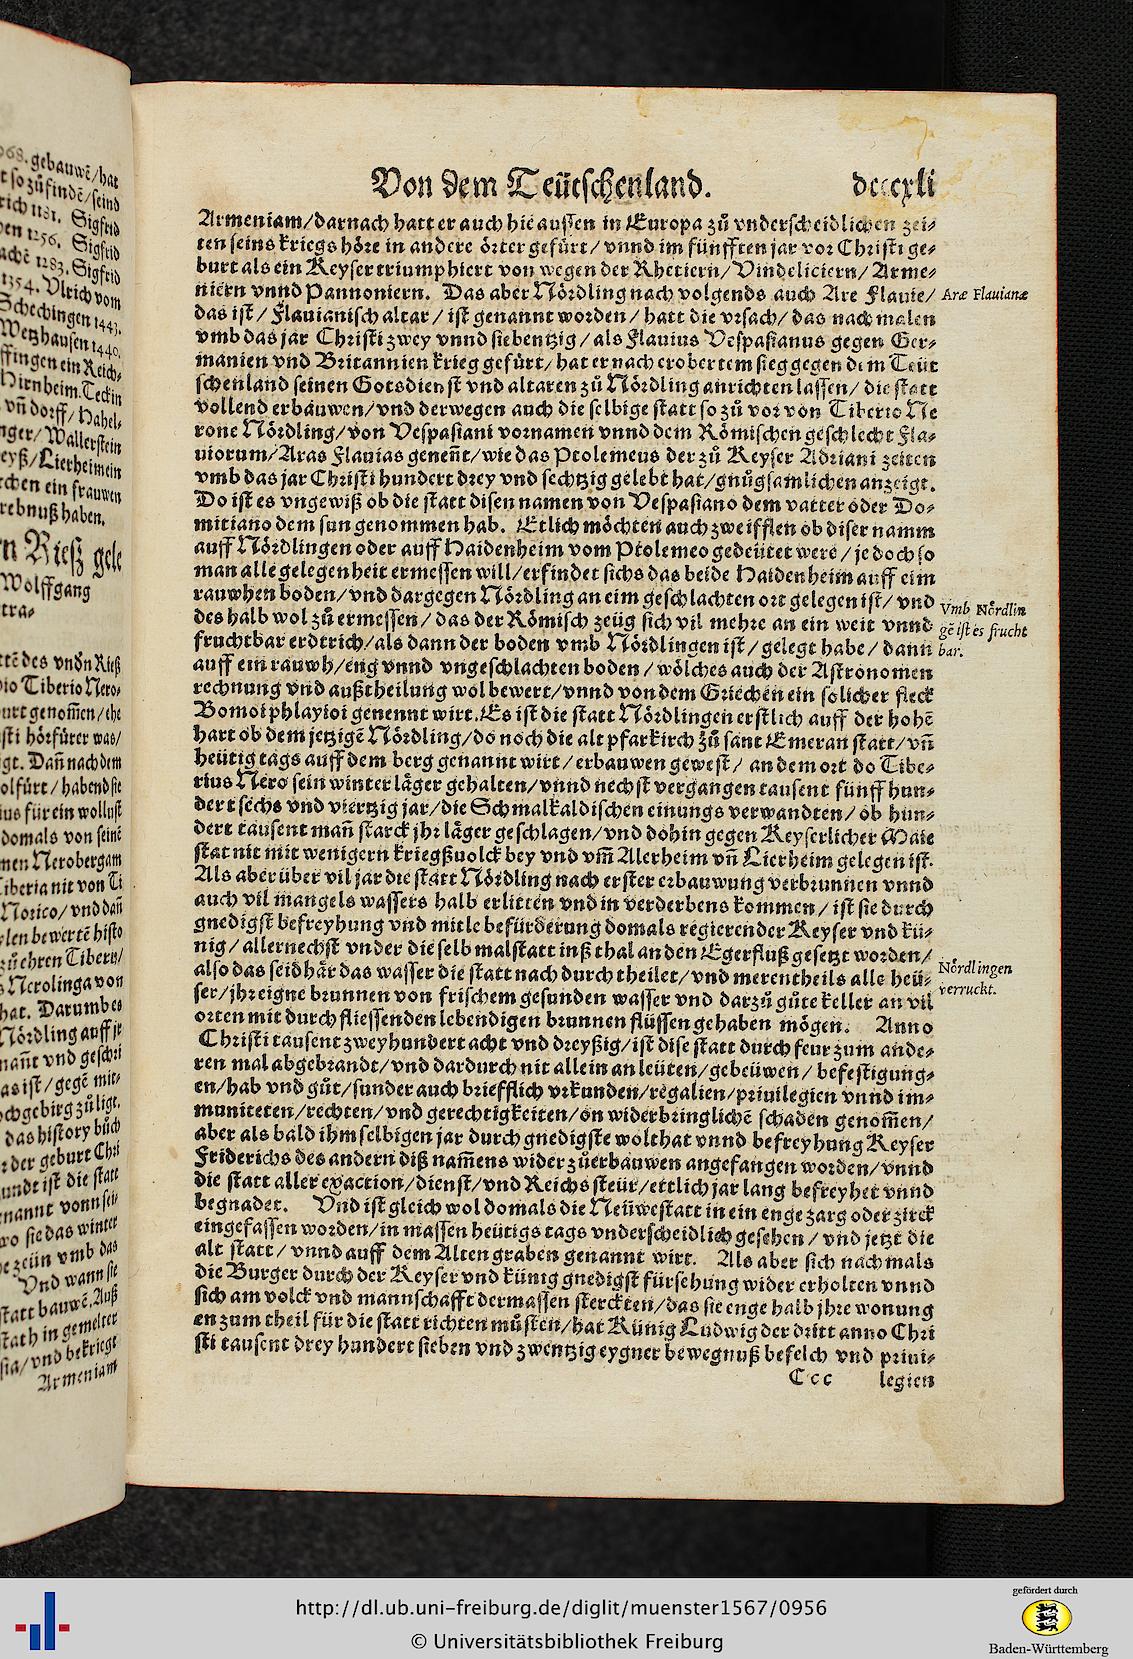 968. gebauwẽ/hat
t so zů findẽ/seind
rich 1181. Sigfrid
en 1256. Sigfrid
achẽ 1283. Sigfrid
1354. Vlrich vom
Schechingen 1443.
Wetzhausen 1440.
ffingen ein Reich-
Hirnheim. Teckin
vñ dorff/Hahel-
nger/Wallerstein
eyß/Lierheimein
rchen ein frauwen
rebnuß haben.
n Rieß gele
Wolffgang
tra-
ttẽ des vndñ Rieß
io Tiberio Nero-
urt genom̃en/ehe
sti hörfürer was/
gt. Dañ nach dem
olfürt/habend sie
ius für ein wollust
domals von seinẽ
men Nerobergam
iberia nit von Ti
Norico/vnd dañ
ylen bewertẽ histo
zů ehren Tiberij/
s Nerolinga von
hat. Darumb es
Nördling auff je
nañt vnd geschri
as ist/gegẽ mit-
ochgebirg zů ligt.
das history bůch
r der geburt Chri
undt ist die statt
nannt vonn sei-
wo sie das winter
e zeün vmb das
Vnd wann sie
statt bauwẽ. Auß
stath in gemelter
sia/vnd bekriegt
Armeniam
Von dem Teütschenland. dcccxli
Armeniam/darnach hatt er auch hie aussen in Europa zů vnderscheidlichen zei-
ten seins kriegs höre in andere örter gefürt/vnnd im fünfften jar vor Christi ge-
burt als ein Keyser triumphiert von wegen der Rhetiern/Vindeliciern/Arme-
niern vnnd Pannoniern. Das aber Nördling nach volgends auch Are Flauie/
Aræ Flauianæ
das ist/Flauianisch altar/ist genannt worden/hatt die vrsach/das nachmalen
vmb das jar Christi zwey vnnd siebentzig/als Flauius Vespasianus gegen Ger-
manien vnd Britannien krieg gefürt/hat er nach erobertem sieg gegen dem Teüt
schenland seinen Gotsdienst vnd altaren zů Nördling anrichten lassen/die statt
vollend erbauwen/vnd derwegen auch die selbige statt so zů vor von Tiberio Ne
rone Nördling/von Vespasiani vornamen vnnd dem Römischen geschlecht Fla-
uiorum/Aras Flauias geneñt/wie das Ptolemeus der zů Keyser Adriani zeiten
vmb das jar Christi hundert drey vnd sechtzig gelebt hat/gnůgsamlichen anzeigt.
Do ist es vngewiß ob die statt disen namen von Vespasiano dem vatter oder Do-
mitiano dem sun genommen hab. Etlich möchten auch zweifflen ob diser namm
auff Nördlingen oder auff Haidenheim vom Ptolemeo gedeütet were/je doch so
man alle gelegenheit ermessen will/erfindet sichs das beide Haidenheim auff eim
rauwhen boden/vnd dargegen Nördling an eim geschlachten ort gelegen ist/vnd
Vmb Nördlin
des halb wol zů ermessen/das der Römisch zeüg sich vil mehre an ein weit vnnd
gẽ ist es frucht
fruchtbar erdtrich/als dann der boden vmb Nördlingen ist/gelegt habe/dann
bar.
auff ein rauwh/eng vnnd vngeschlachten boden/wölches auch der Astronomen
rechnung vnd außtheilung wol bewert/vnnd von dem Griechen ein solicher fleck
Bomoiphlayioi genennt wirt. Es ist die statt Nördlingen erstlich auff der hohẽ
hart ob dem jetzigẽ Nördling/do noch die alt pfarkirch zů sant Emeran statt/vñ
heütig tags auff dem berg genannt wirt/erbauwen gewest/an dem ort do Tibe-
rius Nero sein winter läger gehalten/vnnd nechst vergangen tausent fünff hun-
dert sechs vnd viertzig jar/die Schmalkaldischen einungs verwandten/ob hun-
dert tausent mañ starck jhr läger geschlagen/vnd dohin gegen Keyserlicher Maie
stat nit mit wenigern kriegßuolck bey vnd vm̃ Alerheim vñ Lierheim gelegen ist.
Als aber über vil jar die statt Nördling nach erster erbauwung verbrunnen vnnd
auch vil mangels wassers halb erlitten vnd in verderbens kommen/ist sie durch
gnedigst befreyhung vnd mitle befürderung domals regierender Keyser vnd kü-
nig/allernechst vnder die selb malstatt inß thal an den Egerfluß gesetzt worden/
Nördlingen
also das seidhär das wasser die statt nach durch theilet/vnd merentheils alle heü-
verruckt.
ser/jhr eigne brunnen von frischem gesunden wasser vnd darzů gůte keller an vil
orten mit durch fliessenden lebendigen brunnen flüssen gehaben mögen. Anno
Christi tausent zweyhundert acht vnd dreyßig/ist dise statt durch feur zum ande-
ren mal abgebrandt/vnd dardurch nit allein an leüten/gebeüwen/befestigung-
en/hab vnd gůt/sunder auch briefflich vrkunden/regalien/priuilegien vnnd im-
muniteten/rechten/vnd gerechtigkeiten/on widerbringlichẽ schaden genom̃en/
aber als bald ihm selbigen jar durch gnedigste wolthat vnnd befreyhung Keyser
Friderichs des andern diß nam̃ens wider zů erbauwen angefangen worden/vnnd
die statt aller exaction/dienst/vnd Reichs steür/ettlich jar lang befreyhet vnnd
begnadet. Vnd ist gleich wol domals die Neüwestatt in ein enge zarg oder zirck
eingefassen worden/in massen heütigs tags vnderscheidlich gesehen/vnd jetzt die
alt statt/vnnd auff dem Alten graben genannt wirt. Als aber sich nachmals
die Burger durch der Keyser vnd künig gnedigst fürsehung wider erholten vnnd
sich am volck vnd mannschafft dermassen sterckten/das sie enge halb jhre wonung
en zum theil für die statt richten můsten/hat Künig Ludwig der dritt anno Chri
sti tausent drey hundert sieben vnd zwentzig eygner bewegnuß befelch vnd priui-
Ccc legien
http://dl.ub.uni-freiburg.de/diglit/muenster1567/0956
© Universitätsbibliothek Freiburg
gefördert durch
Baden-Württemberg